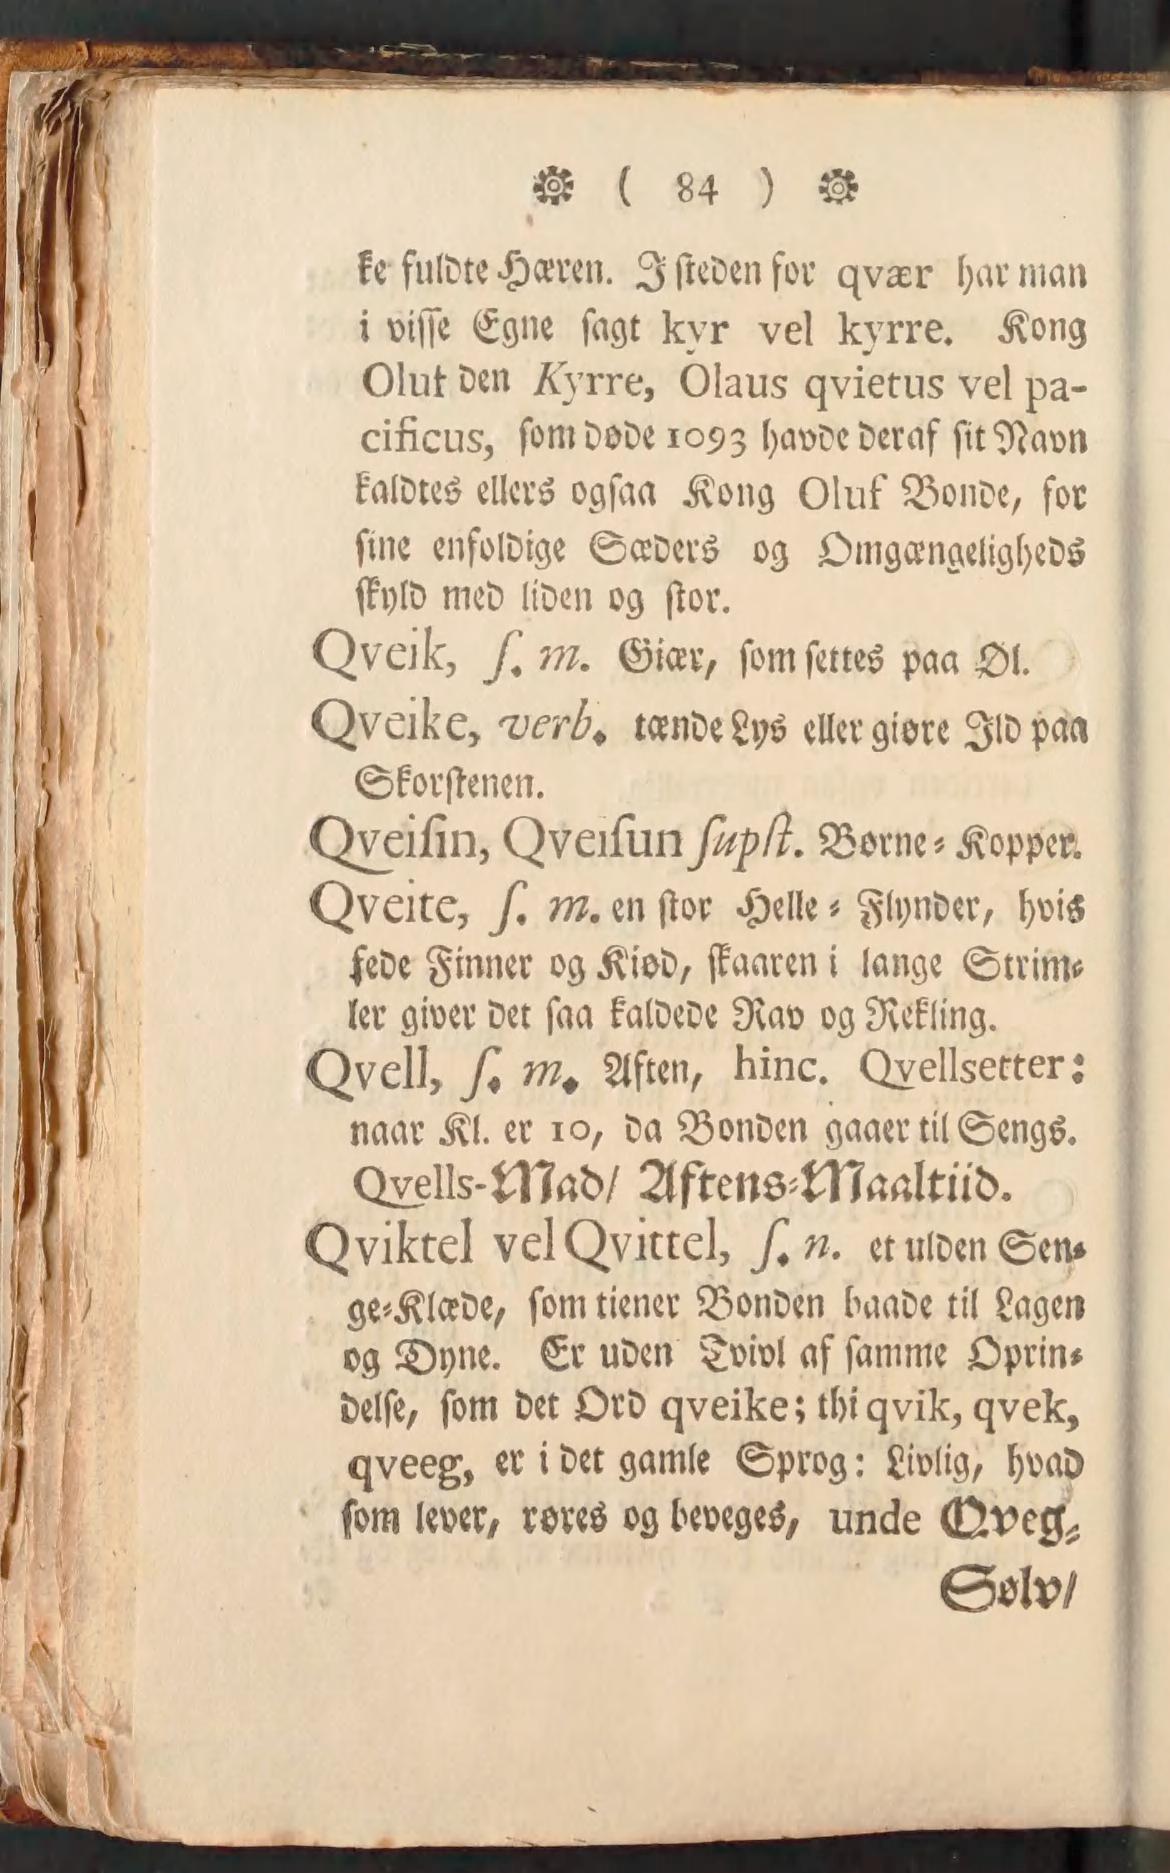 ( 84 )
ke fuldte Hæren. I steden for qvær har man
i visse Egne sagt kyr vel kyrre. Kong
Oluf den Kyrre, Olaus qvietus vel pa-
cificus, som døde 1093 havde deraf sit Navn
kaldtes ellers ogsaa Kong Oluf Bonde, for
sine enfoldige Sæders og Omgængeligheds
skyld med liden og stor.
Qveik, ſ. m. Giær, som settes paa Øl.
Qveike, verb. tænde Lys eller giøre Ild paa
Skorstenen.
Qveiſin, Qveiſun ſupſt. Børne-Kopper.
Qveite, ſ. m. en stor Helle-Flynder, hvis
fede Finner og Kiød, skaaren i lange Strim-
ler giver det saa kaldede Rav og Rekling.
Qvell, ſ. m. Aften, hinc. Qvellsetter:
naar Kl. er 10, da Bonden gaaer til Sengs.
Qvells-Mad/ Aftens-Maaltiid.
Qviktel vel Qvittel, ſ. n. et ulden Sen-
ge-Klæde, som tiener Bonden baade til Lagen
og Dyne. Er uden Tvivl af samme Oprin-
delse, som det Ord qveike; thi qvik, qvek,
qveeg, er i det gamle Sprog: Livlig, hvad
som lever, røres og beveges, unde Qveg-
Sølv/